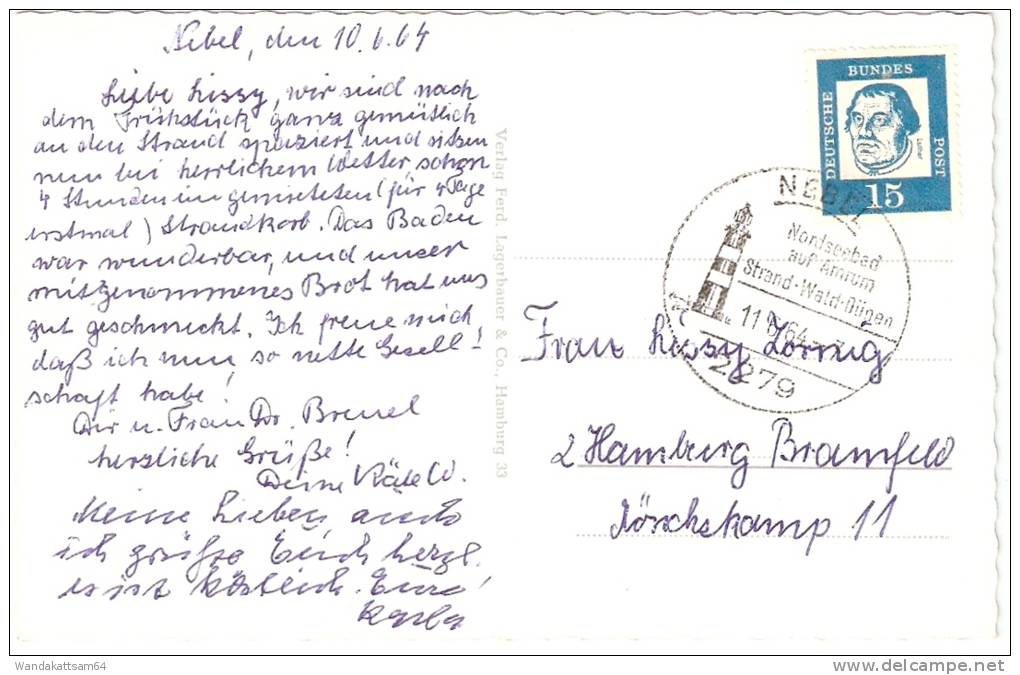 Nebel, den 10.6.64
Liebe Lissy, wir sind nach
dem Frühstück ganz gemütlich
an den Strand spaziert und sitzen
nun bei herrlichem Wetter schon
4 Stunden im gemieteten (für 4 Tage
erstmal) Strandkorb. Das Baden
war wunderbar, und unser
mitgenommenes Brot hat uns
gut geschmeckt. Ich freue mich,
daß ich nun so nette Gesell-
schaft habe!
Dir u. Frau Dr. Breuel
herzliche Grüße!
Deine Käte W.
Meine Lieben, auch
ich grüße Euch herzl.
es ist köstlich. Eure!
Karla
Verlag Ferd. Lagerbauer & Co., Hamburg 33
DEUTSCHE
BUNDES
POST
Luther
15
NEBEL
Nordseebad
auf Amrum
Strand-Wald-Dünen
11.6.64
2279
Frau Lissy Zornig
2 Hamburg Bramfeld
11
Wandakattsam64
www.delcampe.net